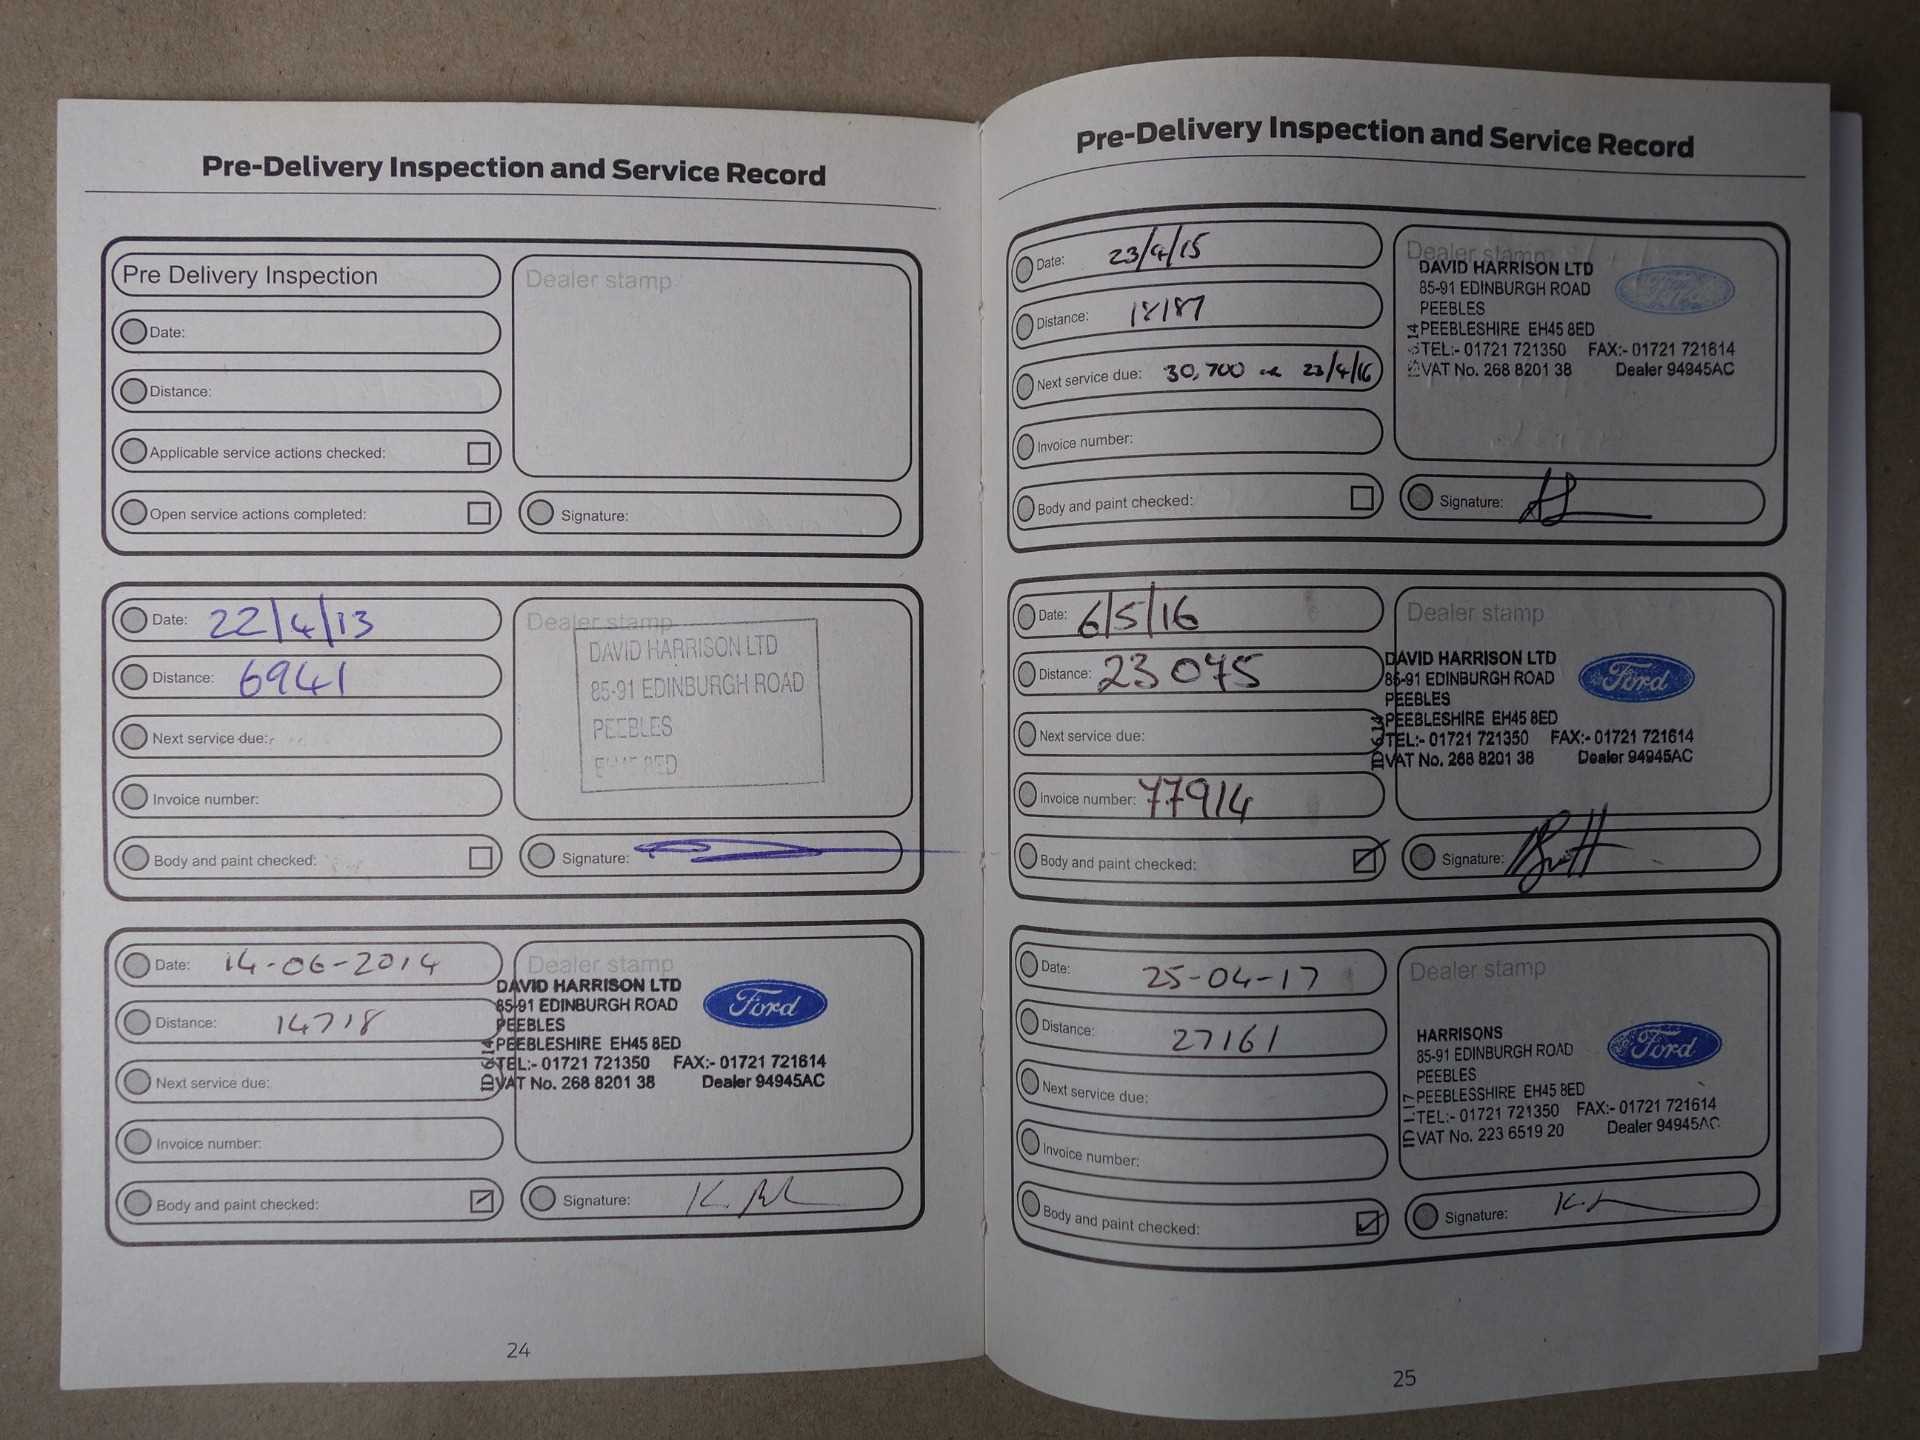 Pre-Delivery Inspection and Service Record
Pre Delivery Inspection
Date:
Distance:
Applicable service actions checked:
Open service actions completed:
Dealer stamp
Signature:
Date: 22/4/13
Distance: 6941
Next service due:
Invoice number:
Body and paint checked:
Dealer stamp
DAVID HARRISON LTD
85-91 EDINBURGH ROAD
PEEBLES
EH45 8ED
Signature:
Date: 14-06-2014
Distance: 14718
Next service due:
Invoice number:
Body and paint checked:
Dealer stamp
DAVID HARRISON LTD
85-91 EDINBURGH ROAD
PEEBLES
PEEBLESHIRE EH45 8ED
TEL:- 01721 721350 FAX:- 01721 721614
VAT No. 268 8201 38 Dealer 94945AC
ID 6.14
Ford
Signature:
24
Pre-Delivery Inspection and Service Record
Date: 23/4/15
Distance: 18187
Next service due: 30,700 or 23/4/16
Invoice number:
Body and paint checked:
Dealer stamp
DAVID HARRISON LTD
85-91 EDINBURGH ROAD
PEEBLES
PEEBLESHIRE EH45 8ED
TEL:- 01721 721350 FAX:- 01721 721614
VAT No. 268 8201 38 Dealer 94945AC
Signature:
Date: 6/5/16
Distance: 23075
Next service due:
Invoice number: 77914
Body and paint checked:
Dealer stamp
DAVID HARRISON LTD
85-91 EDINBURGH ROAD
PEEBLES
PEEBLESHIRE EH45 8ED
TEL:- 01721 721350 FAX:- 01721 721614
VAT No. 268 8201 38 Dealer 94945AC
ID 6.14
Ford
Signature:
Date: 25-04-17
Distance: 27161
Next service due:
Invoice number:
Body and paint checked:
Dealer stamp
HARRISONS
85-91 EDINBURGH ROAD
PEEBLES
PEEBLESSHIRE EH45 8ED
TEL:- 01721 721350 FAX:- 01721 721614
VAT No. 223 6519 20 Dealer 94945AC
ID 1.17
Ford
Signature:
25